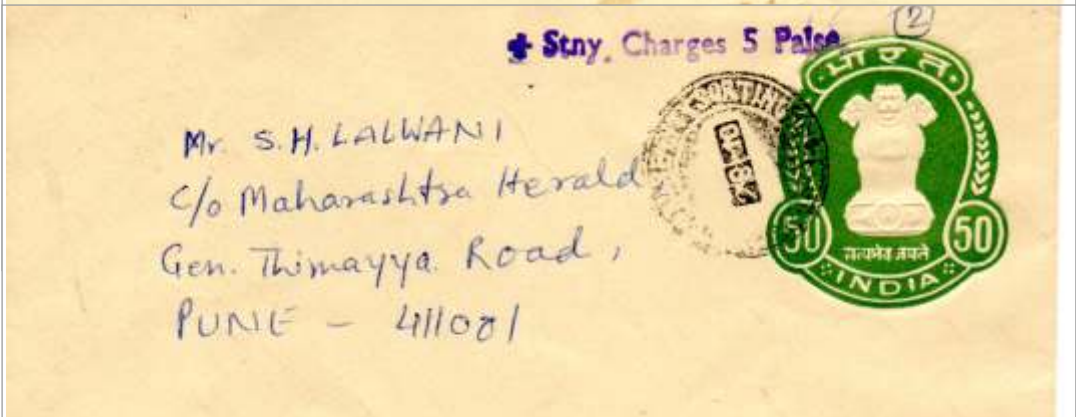 2
+ Stny. Charges 5 Paise
भारत
Mr. S.H. LALWANI
C/o Maharashtra Herald
Gen. Thimayya Road,
PUNE - 411001
50 50
सत्यमेव जयते
INDIA